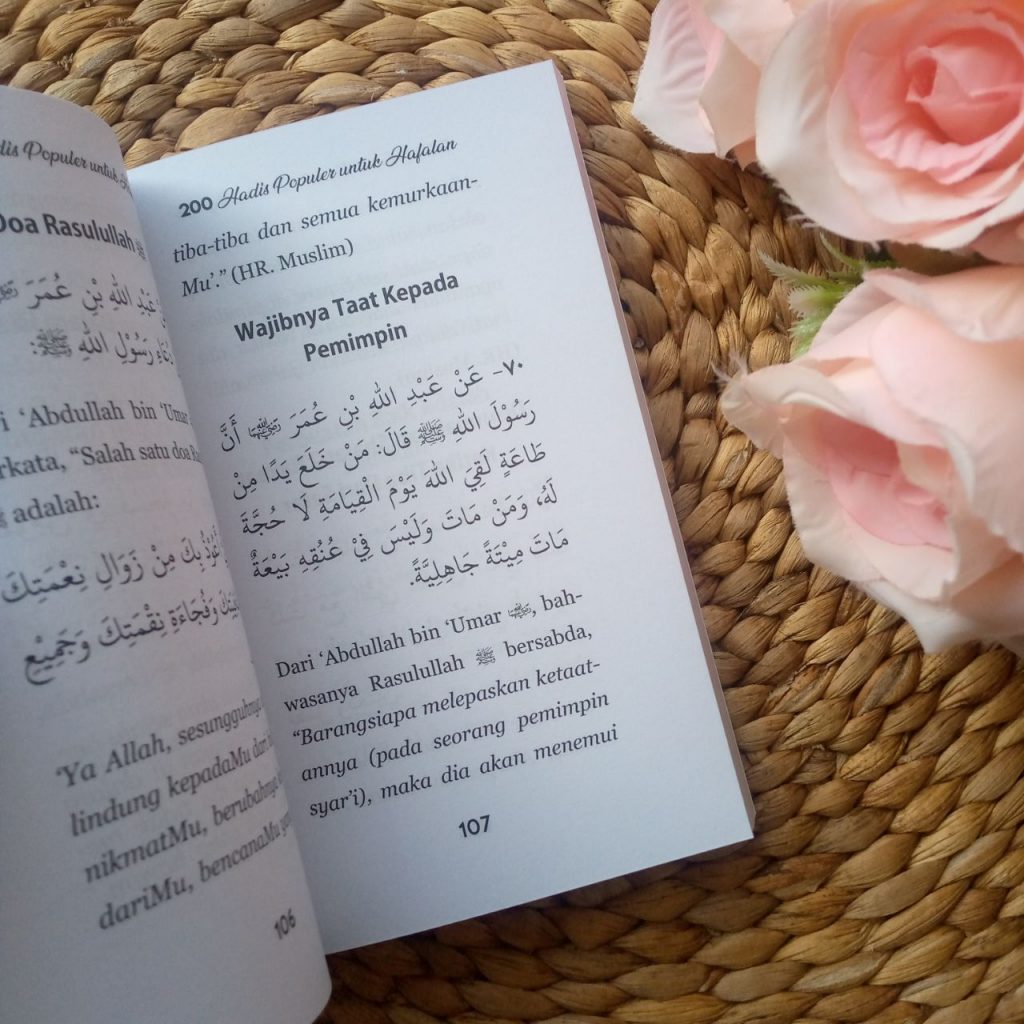 dis Populer untuk
Doa Rasulullah ﷺ
عَبْدِ اللهِ بْنِ عُمَرَ
رَسُوْلِ اللهِ ﷺ:
'Abdullah bin 'Umar
rkata, "Salah satu doa
adalah:
بِكَ مِنْ زَوَالِ نِعْمَتِكَ
وَفُجَاءَةِ نِقْمَتِكَ وَجَمِيْعِ
'Ya Allah, sesungguhnya
lindung kepadaMu dari
nikmatMu, berubahnya
dariMu, bencanaMu
106
200 Hadis Populer untuk Hafalan
tiba-tiba dan semua kemurkaan-
Mu'." (HR. Muslim)
Wajibnya Taat Kepada
Pemimpin
٧٠- عَنْ عَبْدِ اللهِ بْنِ عُمَرَ رضي الله عنهما أَنَّ
رَسُوْلَ اللهِ ﷺ قَالَ: مَنْ خَلَعَ يَدًا مِنْ
طَاعَةٍ لَقِيَ اللهَ يَوْمَ الْقِيَامَةِ لَا حُجَّةَ
لَهُ، وَمَنْ مَاتَ وَلَيْسَ فِيْ عُنُقِهِ بَيْعَةٌ
مَاتَ مِيْتَةً جَاهِلِيَّةً.
Dari 'Abdullah bin 'Umar رضي الله عنهما, bah-
wasanya Rasulullah ﷺ bersabda,
"Barangsiapa melepaskan ketaat-
annya (pada seorang pemimpin
syar'i), maka dia akan menemui
107